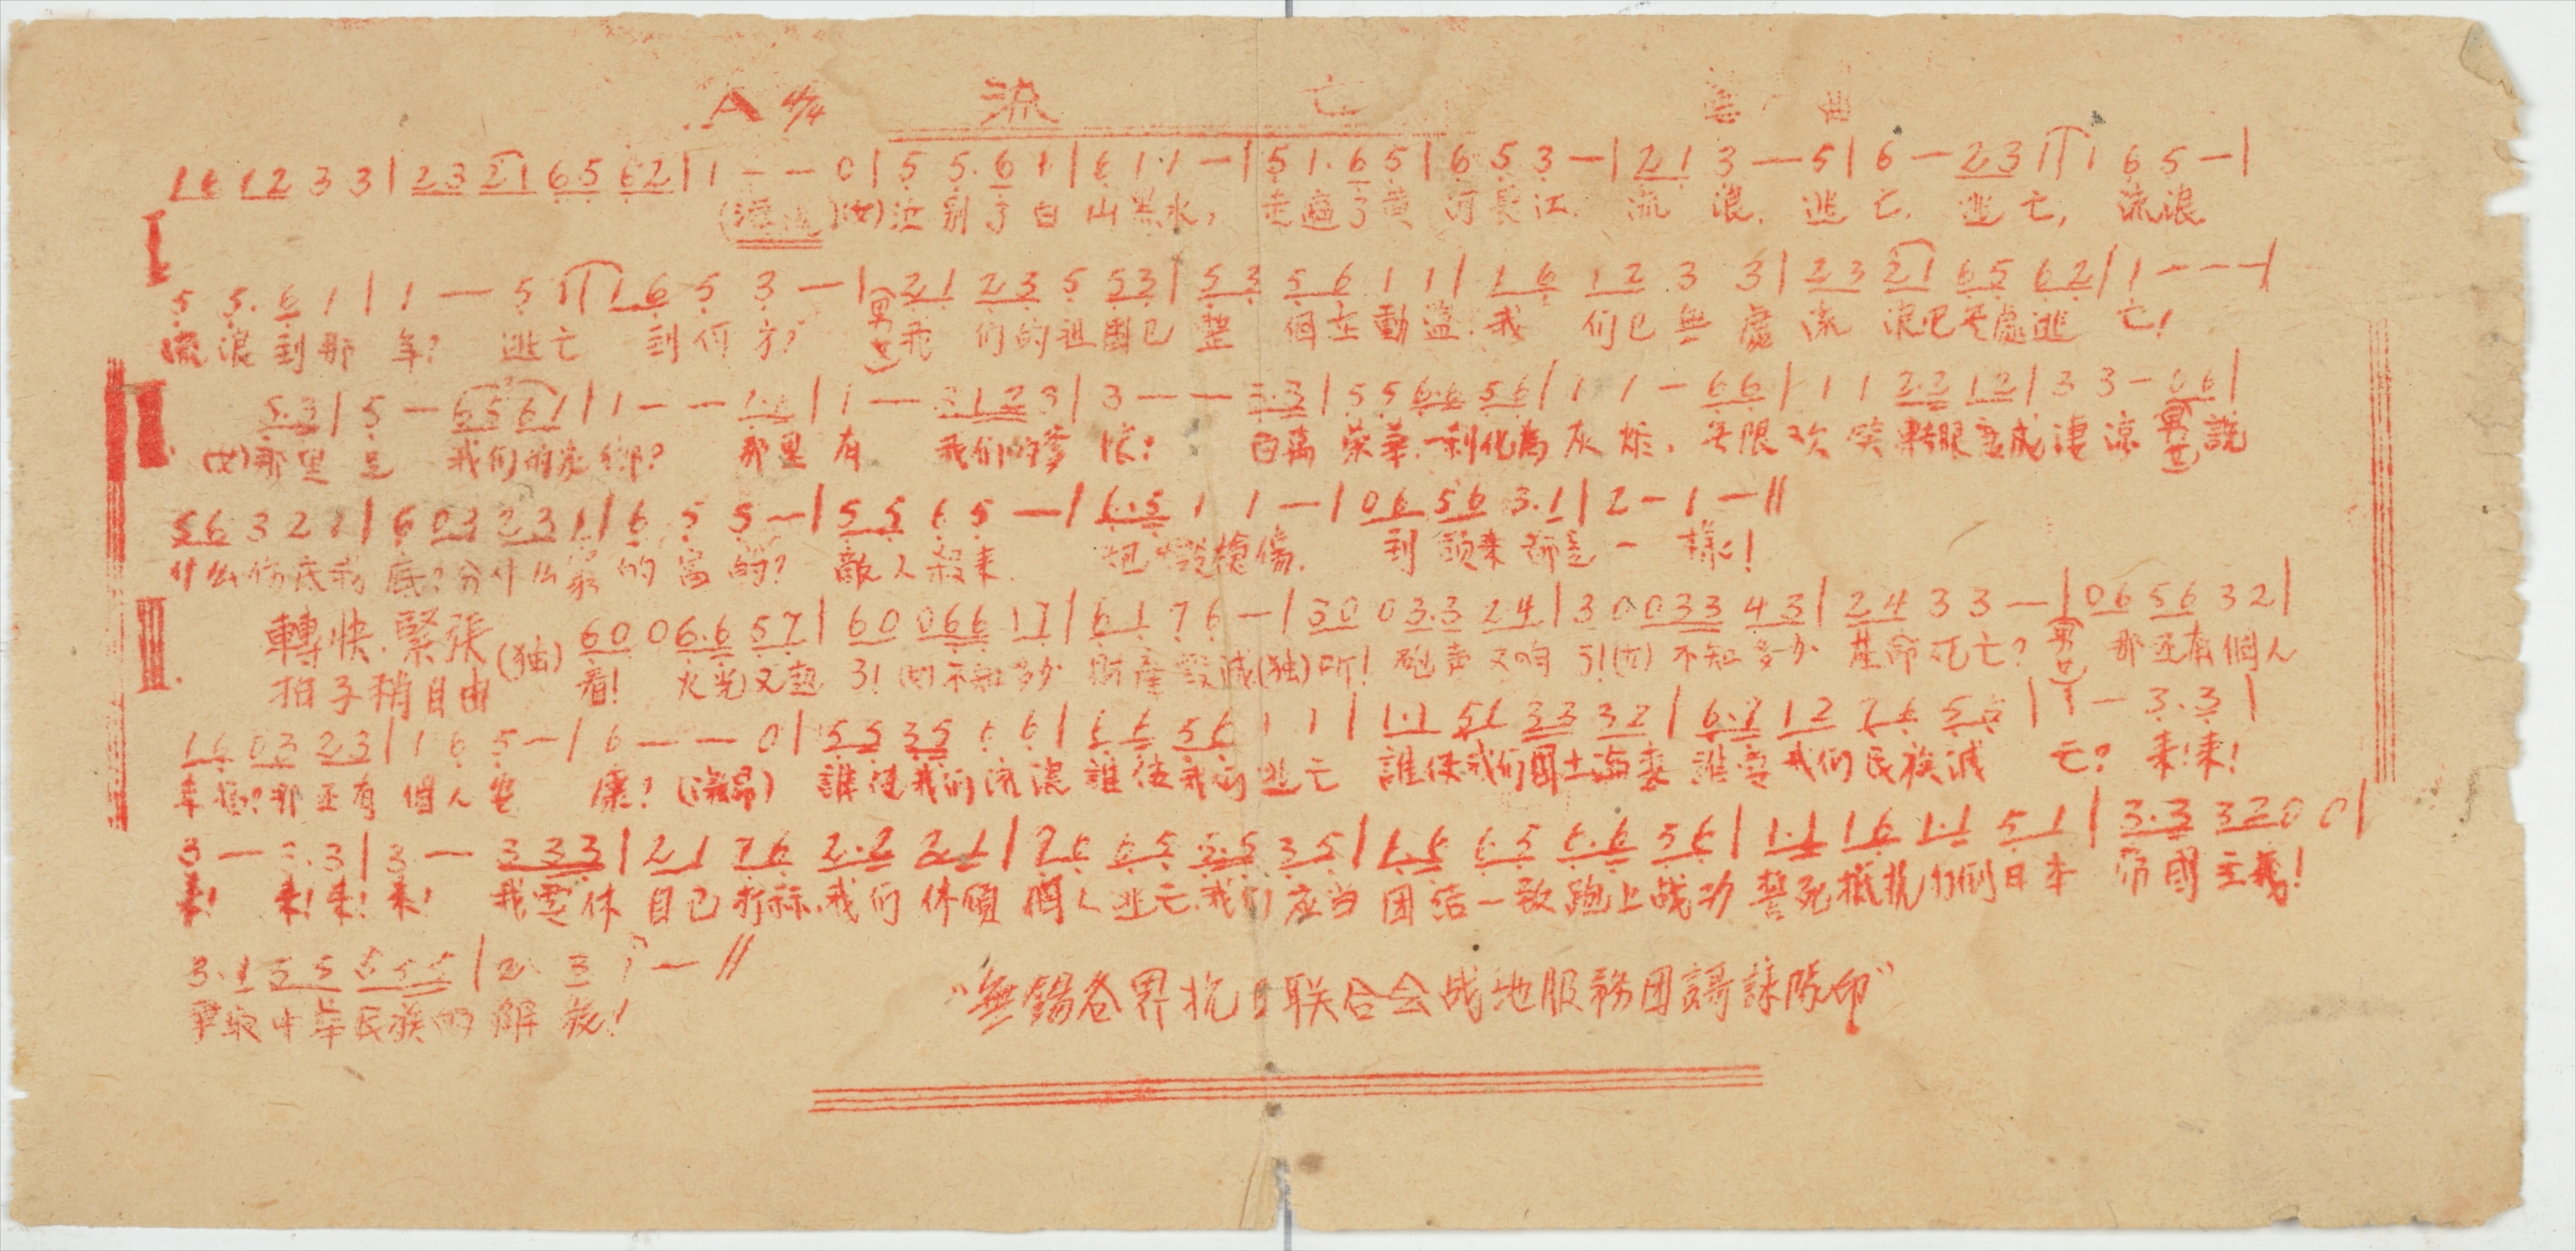 A 4/4 流亡 曲
1 6 1 2 3 3 | 2 3 2 1 6 5 6 2 | 1 — — 0 | 5 5. 6 1 | 6 1 1 — | 5 1. 6 5 | 6 5 3 — | 2 1 3 — 5 | 6 — 2 3 1 | 1 6 5 — |
(女) 泣别了白山黑水, 走遍了黄河長江. 流浪. 逃亡. 逃亡, 流浪
I
5 5. 6 1 | 1 — 5 1 | 1 6 5 3 — | 2 1 2 3 5 5 3 | 5 3 5 6 1 1 | 1 6 1 2 3 3 | 2 3 2 1 6 5 6 2 | 1 — — — |
流浪到那年? 逃亡到何方? (男女) 我们的祖國已整個在動盪. 我们已無處流浪已無處逃亡!
II
5 3 | 5 — 6 5 6 1 | 1 — — 1. 6 | 1 — 3 1 2 3 | 3 — — 3. 3 | 5 5 6. 6 5 6 | 1 1 — 6 6 | 1 1 2. 2 1 2 | 3 3 — 0 6 |
(女) 那里是我们的家鄉? 那里有我们的爹娘? 百萬榮華. 一刹化為灰燼. 無限欢笑轉眼变成凄凉 (男女) 說
5 6 3 2 1 | 6 0 3 2 3 1 | 6 5 5 — | 5 5 6 5 — | 6. 5 1 1 — | 0 6 5 6 3. 1 | 2 — 1 — ||
什么你底我底? 分什么窮的富的? 敵人殺来. 炮毀槍傷. 到頭来都是一樣!
III.
轉快. 緊張
拍子稍自由
6 0 0 6. 6 5 7 | 6 0 0 6 6 1 7 | 6 1 7 6 — | 3 0 0 3. 3 2 4 | 3 0 0 3 3 4 3 | 2 4 3 3 — | 0 6 5 6 3 2 |
(独) 看! 火光又起了! (女) 不知多少財產毀滅 (独) 听! 砲声又响了! (女) 不知多少生命死亡? (男女) 那还有個人
1 6 0 3 2 3 | 1 6 5 — | 6 — — 0 | 5 5 3 5 6 6 | 6 6 5 6 1 1 | 1. 1 5 1 3 3 3 2 | 6. 7 1 2 7 6 5 5 | 1 — 3. 3 |
幸福? 那还有個人安康? (激昂) 誰使我们流浪誰使我们逃亡 誰使我们國土淪喪 誰要我们民族滅亡? 来! 来!
3 — 3. 3 | 3 — 3 3 3 | 2 1 7 6 2. 2 2 1 | 7 6 6 5 5. 5 3 5 | 1. 6 6 5 6. 6 5 6 | 1. 1 1 6 1. 1 5 1 | 3. 3 3 2 0 0 |
来! 来! 来! 来! 我要休自己打祘. 我们休顧個人逃亡. 我们应当团结一致跑上战场誓死抵抗打倒日本帝國主義!
3. 1 5 5 5 5 5 | 2 3 1 — ||
爭取中華民族的解放!
“無錫各界抗日联合会战地服務团謌詠隊印”